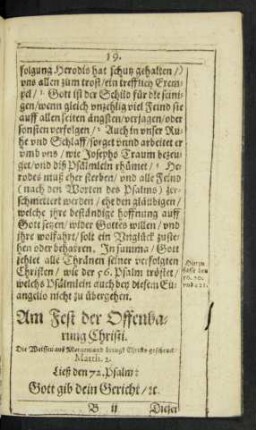 19.
folgung Herodis hat schutz gehalten /
vns allen zum trost / ein trefflich Exem-
pel / Gott ist der Schild für die seini-
gen / wenn gleich vnzehlig viel Feind sie
auff allen seiten ängsten / verjagen / oder
sonsten verfolgen / Auch in vnser Ru-
he vnd Schlaff / sorget vnnd arbeitet er
vmb vns / wie Josephs Traum bezeu-
get / vnd diß Psälmlein rhümet / He-
rodes muß eher sterben / vnd alle Feind
(nach den Worten des Psalms) zer-
schmettert werden / ehe den gläubigen /
welche jhre beständige hoffnung auff
Gott setzen / wider Gottes willen / vnd
jhre wolfahrt / solt ein Vnglück zuste-
hen oder behafften. In summa / Gott
zehlet alle Thränen seiner verfolgten
Christen / wie der 56. Psalm tröstet /
welchs Psälmlein auch bey diesem Eu-
angelio nicht zu übergehen.
Am Fest der Offenba-
rung Christi.
Die Weisen aus Morgenland bringen Christo geschenck
Matth. 2.
Ließ den 72. Psalm:
Gott gib dein Gericht / ɾc.
B ij
Dieser